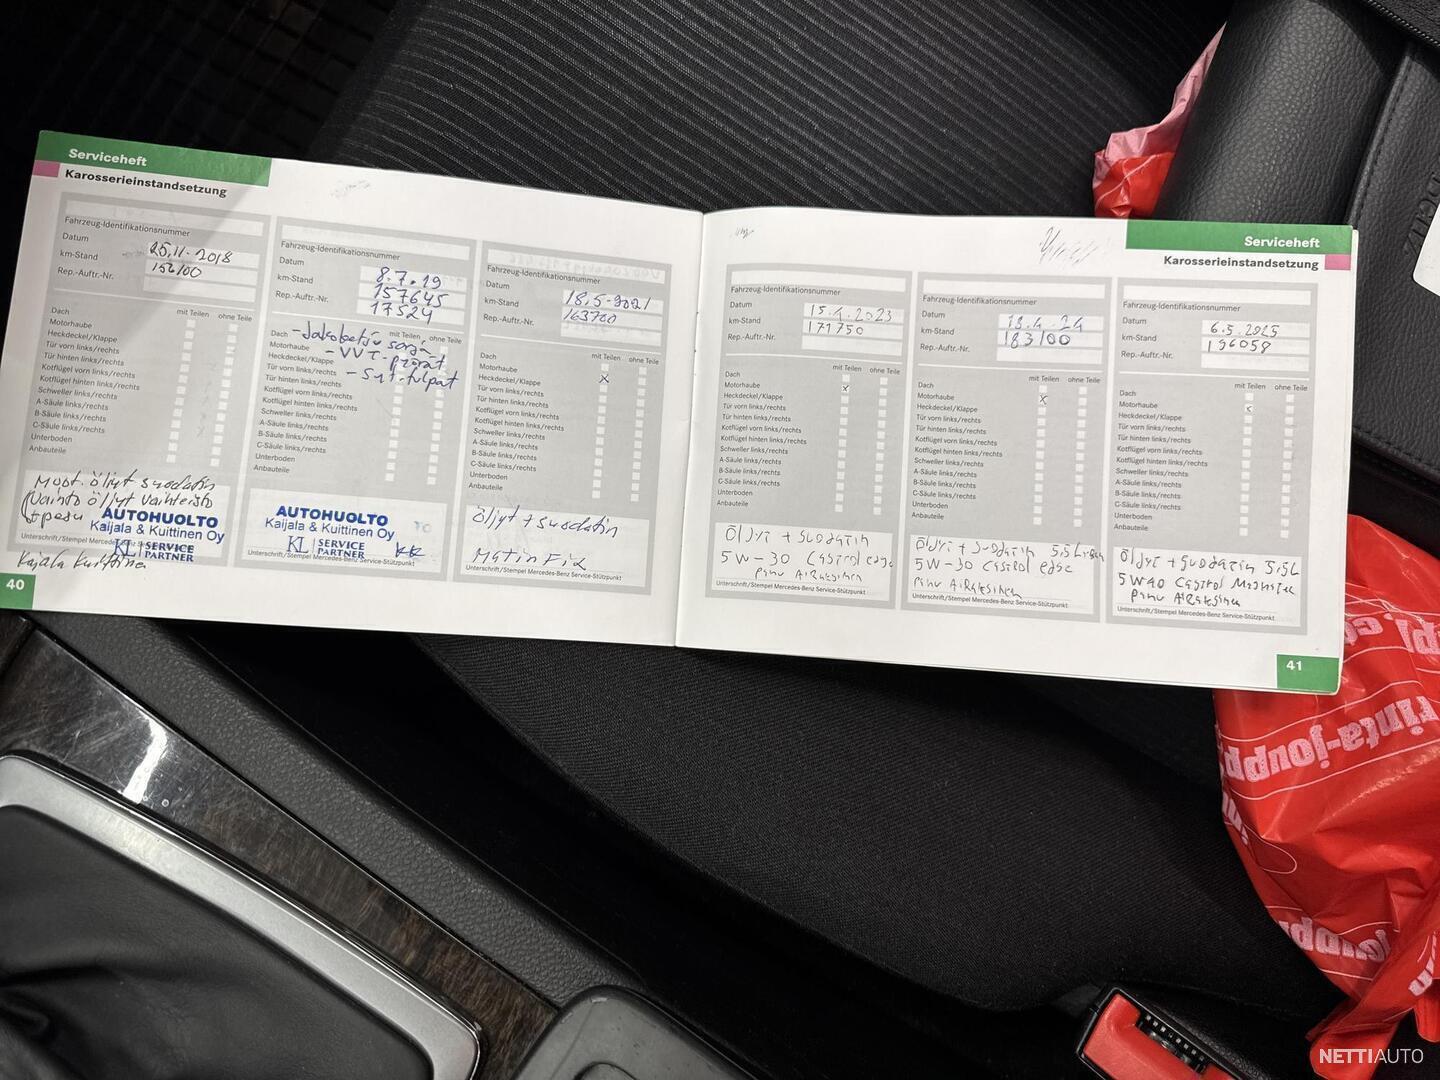 Serviceheft
Karosserieinstandsetzung
Fahrzeug-Identifikationsnummer
Datum 25.11.2018
km-Stand 156100
Rep.-Auftr.-Nr.
mit Teilen ohne Teile
Dach
Motorhaube
Heckdeckel/Klappe
Tür vorn links/rechts
Tür hinten links/rechts
Kotflügel vorn links/rechts
Kotflügel hinten links/rechts
Schweller links/rechts
A-Säule links/rechts
B-Säule links/rechts
C-Säule links/rechts
Unterboden
Anbauteile
öljyt suodatin
öljyt Vaihteisto
+pesu
AUTOHUOLTO
Kaijala & Kuittinen Oy
KL SERVICE PARTNER
Unterschrift/Stempel Mercedes-Benz Service-Stützpunkt
Kaijala Kuittinen
40
Fahrzeug-Identifikationsnummer
Datum 8.7.19
km-Stand 157645
Rep.-Auftr.-Nr. 17524
mit Teilen ohne Teile
Dach -Jakoketju sarja,
Motorhaube -VVT-pyörät
Heckdeckel/Klappe -Syt.tulpat
Tür vorn links/rechts
Tür hinten links/rechts
Kotflügel vorn links/rechts
Kotflügel hinten links/rechts
Schweller links/rechts
A-Säule links/rechts
B-Säule links/rechts
C-Säule links/rechts
Unterboden
Anbauteile
AUTOHUOLTO
Kaijala & Kuittinen Oy
KL SERVICE PARTNER
KK
Unterschrift/Stempel Mercedes-Benz Service-Stützpunkt
Fahrzeug-Identifikationsnummer
Datum 18.5-2021
km-Stand 163700
Rep.-Auftr.-Nr.
mit Teilen ohne Teile
Dach
Motorhaube
Heckdeckel/Klappe x
Tür vorn links/rechts
Tür hinten links/rechts
Kotflügel vorn links/rechts
Kotflügel hinten links/rechts
Schweller links/rechts
A-Säule links/rechts
B-Säule links/rechts
C-Säule links/rechts
Unterboden
Anbauteile
Öljyt + suodatin
Matin Fix
Unterschrift/Stempel Mercedes-Benz Service-Stützpunkt
Serviceheft
Karosserieinstandsetzung
Fahrzeug-Identifikationsnummer
Datum 15.4.2023
km-Stand 171750
Rep.-Auftr.-Nr.
mit Teilen ohne Teile
Dach
Motorhaube x
Heckdeckel/Klappe
Tür vorn links/rechts
Tür hinten links/rechts
Kotflügel vorn links/rechts
Kotflügel hinten links/rechts
Schweller links/rechts
A-Säule links/rechts
B-Säule links/rechts
C-Säule links/rechts
Unterboden
Anbauteile
Öljyt + suodatin
5W-30 Castrol edge
Pinu Airaksinen
Unterschrift/Stempel Mercedes-Benz Service-Stützpunkt
Fahrzeug-Identifikationsnummer
Datum 18.4.24
km-Stand 183100
Rep.-Auftr.-Nr.
mit Teilen ohne Teile
Dach
Motorhaube x
Heckdeckel/Klappe
Tür vorn links/rechts
Tür hinten links/rechts
Kotflügel vorn links/rechts
Kotflügel hinten links/rechts
Schweller links/rechts
A-Säule links/rechts
B-Säule links/rechts
C-Säule links/rechts
Unterboden
Anbauteile
Öljyt + suodatin 5,5L
5W-30 Castrol edge
Pinu Airaksinen
Unterschrift/Stempel Mercedes-Benz Service-Stützpunkt
Fahrzeug-Identifikationsnummer
Datum 6.5.2025
km-Stand 196058
Rep.-Auftr.-Nr.
mit Teilen ohne Teile
Dach
Motorhaube x
Heckdeckel/Klappe
Tür vorn links/rechts
Tür hinten links/rechts
Kotflügel vorn links/rechts
Kotflügel hinten links/rechts
Schweller links/rechts
A-Säule links/rechts
B-Säule links/rechts
C-Säule links/rechts
Unterboden
Anbauteile
Öljyt + suodatin 5,5L
5W40 Castrol
Pinu Airaksinen
Unterschrift/Stempel Mercedes-Benz Service-Stützpunkt
41
rinta-joupp
NETTIAUTO